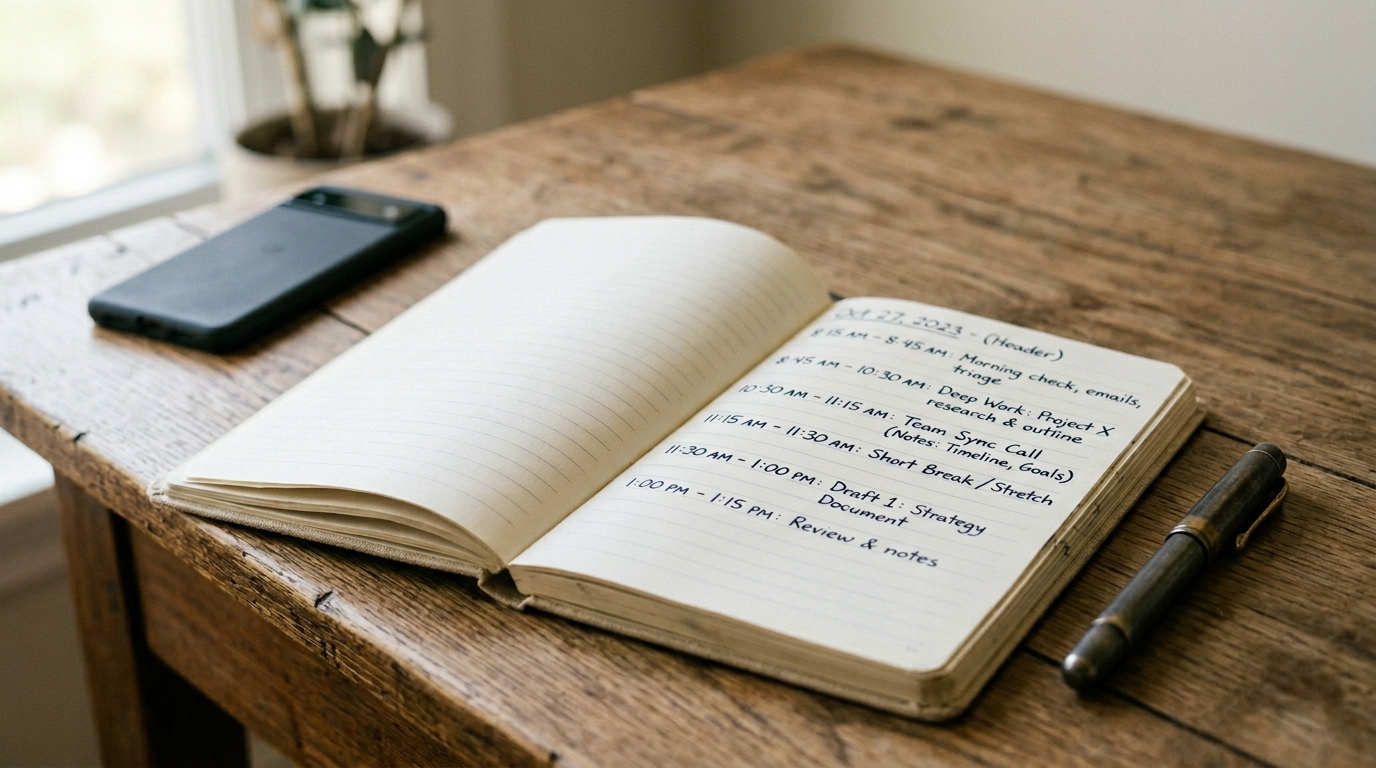 Oct 27, 2023 - (Header)
8:15 AM - 8:45 AM: Morning check, emails,
triage
8:45 AM - 10:30 AM: Deep Work: Project X
research & outline
10:30 AM - 11:15 AM: Team Sync Call
(Notes: Timeline, Goals)
11:15 AM - 11:30 AM: Short Break / Stretch
11:30 AM - 1:00 PM: Draft 1: Strategy
Document
1:00 PM - 1:15 PM: Review & notes